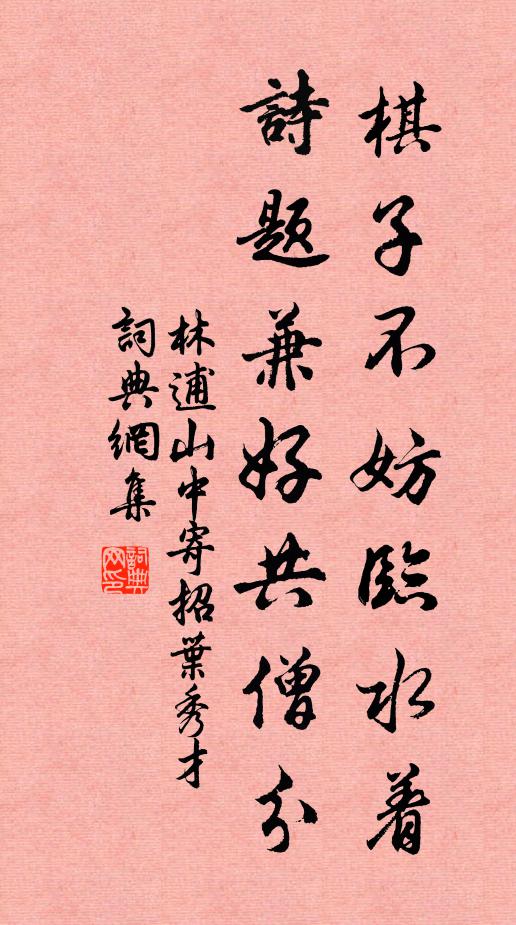 棋子不妨臨水着
詩題兼好共僧分
林逋山中寄招葉秀才
詞典網集
詞典
网印